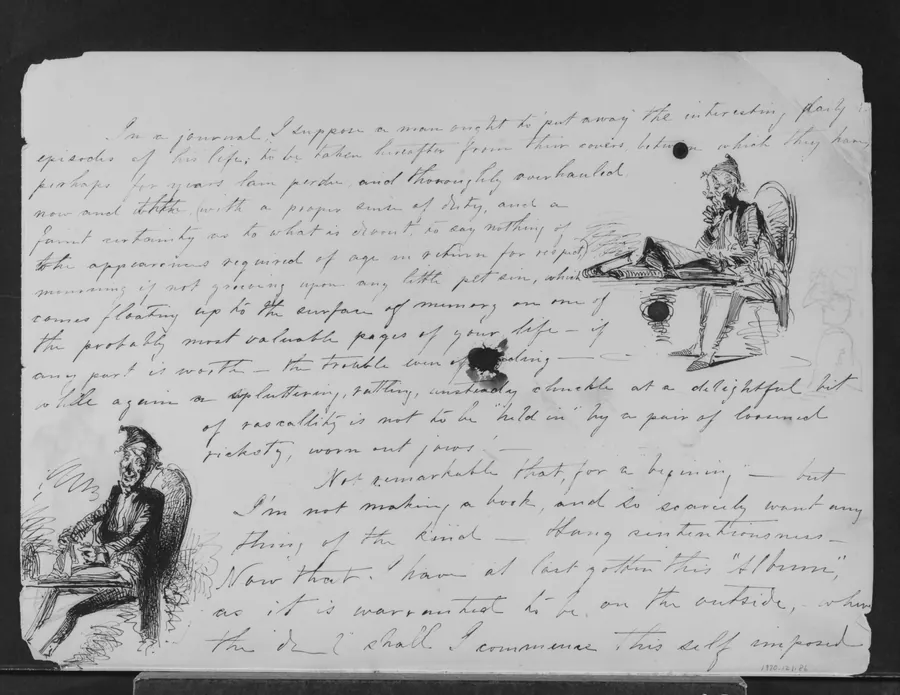 In a journal, I suppose a man ought to put away the interesting daily
episodes of his life; to be taken hereafter from their covers, between which they have
perhaps for years lain perdu, and thoroughly overhauled
now and then (with a proper sense of duty, and a
faint certainty as to what is decent, to say nothing of
the appearances required of age in return for respect)
mourning if not grieving upon any little pet sin, which
comes floating up to the surface of memory on one of
the probably most valuable pages of your life – if
any part is worth – the trouble even of reading –
while again a spluttering, rattling, unsteady chuckle at a delightful bit
of rascallity is not to be "held in" by a pair of loosened
rickety, worn out jaws! –
Not remarkable that, for a begining; – but
I'm not making a book, and so scarcely want any
thing of the kind – Hang sententiousness –
Now that I have at last gotten this "Album",
as it is warranted to be, on the outside, – where
the d—l shall I commence this self imposed